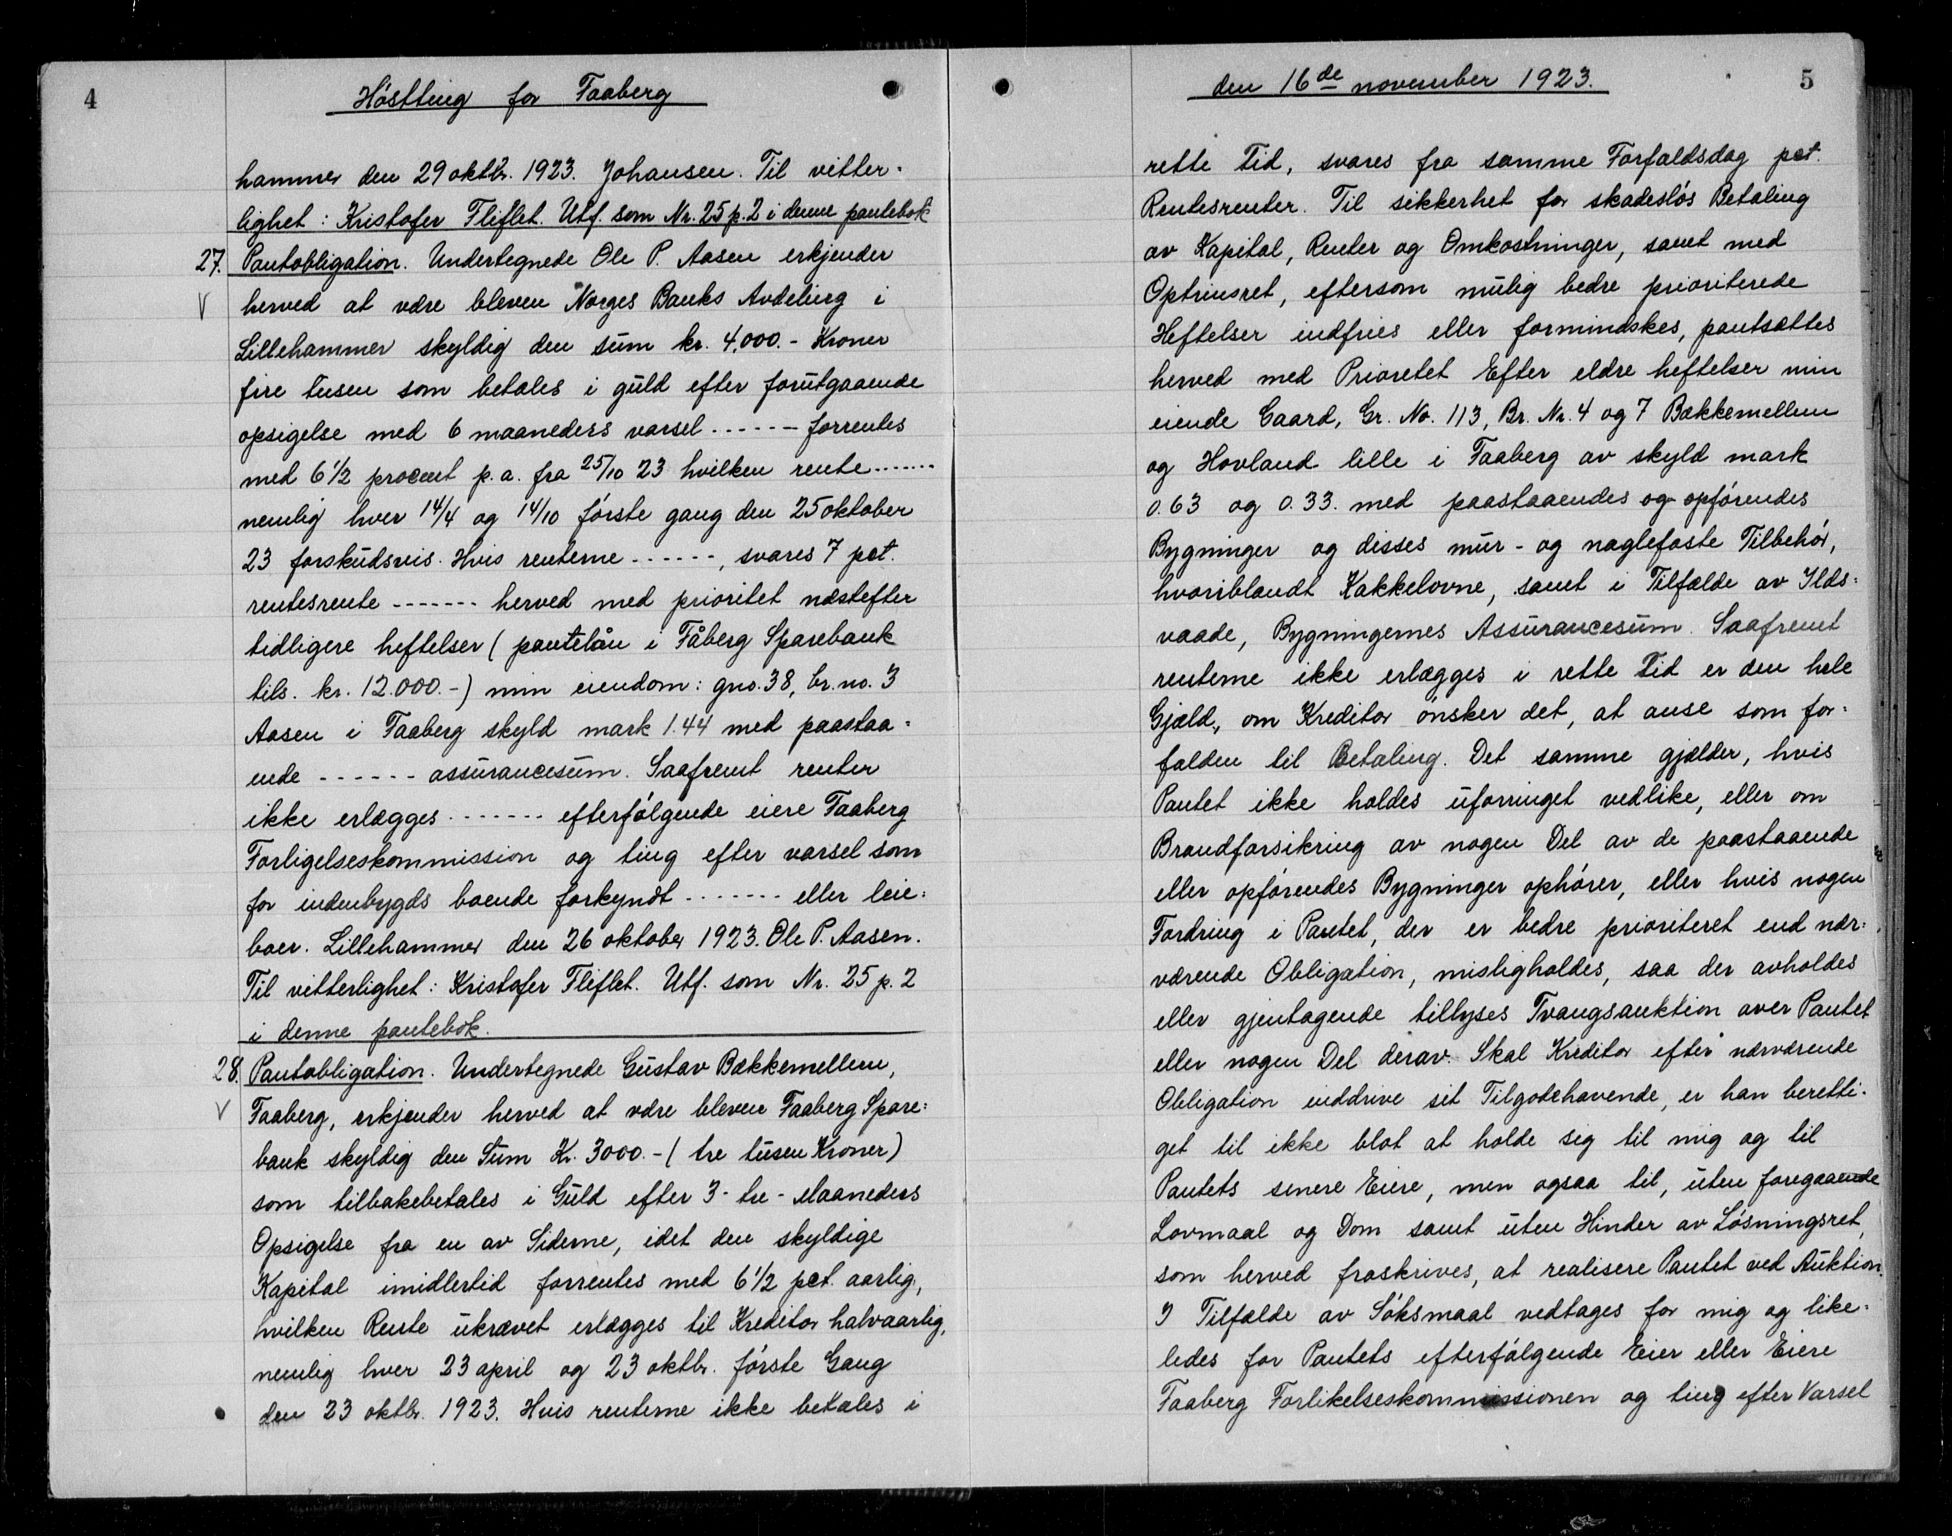 4
Høstting for Faaberg
hammer den 29 oktbr. 1923. Johansen. Til vitter-
lighet: Kristofer Fliflet. Utf. som Nr. 25 p. 2 i denne pantebok
27. Pantobligation. Undertegnede Ole P. Aasen erkjender
V herved at være bleven Norges Banks Avdeling i
Lillehammer skyldig den sum kr. 4,000.- Kroner
fire tusen som betales i guld efter forutgaaende
opsigelse med 6 maaneders varsel ------ forrentes
med 6 1/2 procent p.a. fra 25/10 23 hvilken rente -------
nemlig hver 14/4 og 14/10 første gang den 25 oktober
23 forskudsvis. Hvis renterne ------, svares 7 pct.
rentesrente ------- herved med prioritet næstefter
tidligere heftelser (pantelån i Fåberg Sparebank
tils. kr. 12.000.-) min eiendom: gno. 38, br. no. 3
Aasen i Faaberg skyld mark 1.44 med paastaa-
ende ------ assurancesum. Saafremt renter
ikke erlægges ------- efterfølgende eiere Faaberg
Forligelseskommission og ting efter varsel som
for indenbygds boende forkyndt ------- eller leie:
boer. Lillehammer den 26 oktober 1923. Ole P. Aasen.
Til vitterlighet: Kristofer Fliflet. Utf. som Nr. 25 p. 2
i denne pantebok.
28. Pantobligation. Undertegnede Gustav Bækkemellem,
V Faaberg, erkjender herved at være bleven Faaberg Spare:
bank skyldig den Sum Kr. 3000.- (tre tusen Kroner)
som tilbakebetales i Guld efter 3- tre - Maaneders
Opsigelse fra en av Siderne, idet den skyldige
Kapital imidlertid forrentes med 6 1/2 pct. aarlig,
hvilken Rente ukrævet erlægges til Kreditor halvaarlig,
nemlig hver 23 april og 23 oktbr. første Gang
den 23 oktbr. 1923. Hvis renterne ikke betales i
den 16de november 1923.
5
rette Tid, svares fra samme Forfaldsdag pct.
Rentesrenter. Til sikkerhet for skadesløs Betaling
av Kapital, Renter og Omkostninger, samt med
Optrinsret, eftersom mulig bedre prioriterede
Heftelser indfries eller formindskes, pantsættes
herved med Prioritet Efter eldre heftelser min
eiende Gaard, Gr. No. 113, Br. Nr. 4 og 7 Bækkemellem
og Hovland lille i Faaberg av skyld mark
0.63 og 0.33. med paastaaendes og opførendes
Bygninger og disses mur- og naglefaste Tilbehør,
hvoriblandt Kakkelovne, samt i Tilfælde av Ilds:
vaade, Bygningernes Assurancesum. Saafremt
renterne ikke erlægges i rette Tid er den hele
Gjæld, om Kreditor ønsker det, at anse som for-
falden til Betaling. Det samme gjælder, hvis
Pantet ikke holdes uforringet vedlike, eller om
Brandforsikring av nogen Del av de paastaaende
eller opførendes Bygninger ophører, eller hvis nogen
Fordring i Pantet, der er bedre prioriteret end nær:
værende Obligation, misligholdes, saa der avholdes
eller gjentagende tillyses Tvangsauktion over Pantet
eller nogen Del derav. Skal Kreditor efter nærværende
Obligation inddrive sit Tilgodehavende, er han beretti-
get til ikke blot at holde sig til mig og til
Pantets senere Eiere, men ogsaa til, uten foregaaende
Lovmaal og Dom samt uten Hinder av Løsningsret,
som herved fraskrives, at realisere Pantet ved Auktion.
I Tilfælde av Søksmaal vedtages for mig og like-
ledes for Pantets efterfølgende Eier eller Eiere
Faaberg Forlikelseskommissionen og ting efter Varsel